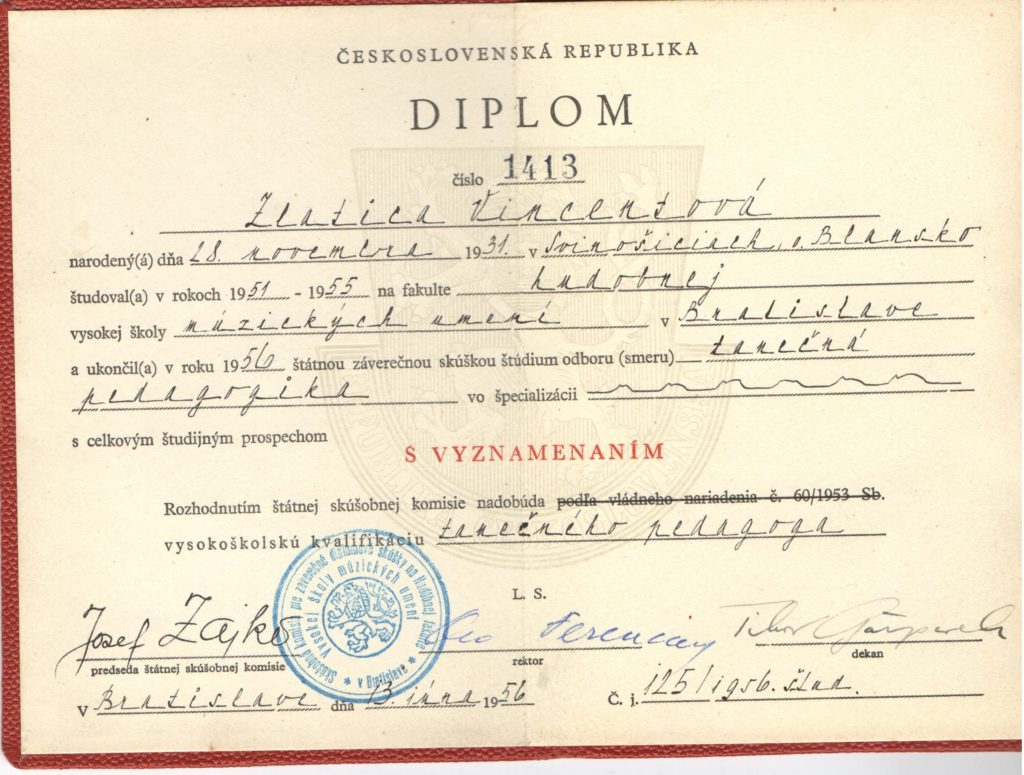 ČESKOSLOVENSKÁ REPUBLIKA
DIPLOM
číslo 1413
Zlatica Vincentová
narodený(á) dňa 28. novembra 1931. v Svinošiciach, o. Blansko
študoval(a) v rokoch 1951 - 1955 na fakulte hudobnej
vysokej školy múzických umení v Bratislave
a ukončil(a) v roku 1956 štátnou záverečnou skúškou štúdium odboru (smeru) tanečná
pedagogika vo špecializácii
s celkovým študijným prospechom
S VYZNAMENANÍM
Rozhodnutím štátnej skúšobnej komisie nadobúda podľa vládneho nariadenia č. 60/1953 Sb.
vysokoškolskú kvalifikáciu tanečného pedagoga
Skúšobná komisia pre záverečné diplomové skúšky na Hudobnej fakulte
Vysokej školy múzických umení
v Bratislave
L. S.
Jozef Zajko Ferenczy Tibor
predseda štátnej skúšobnej komisie rektor dekan
v Bratislave dňa 13. júna 1956 Č. j. 125/1956. štud.